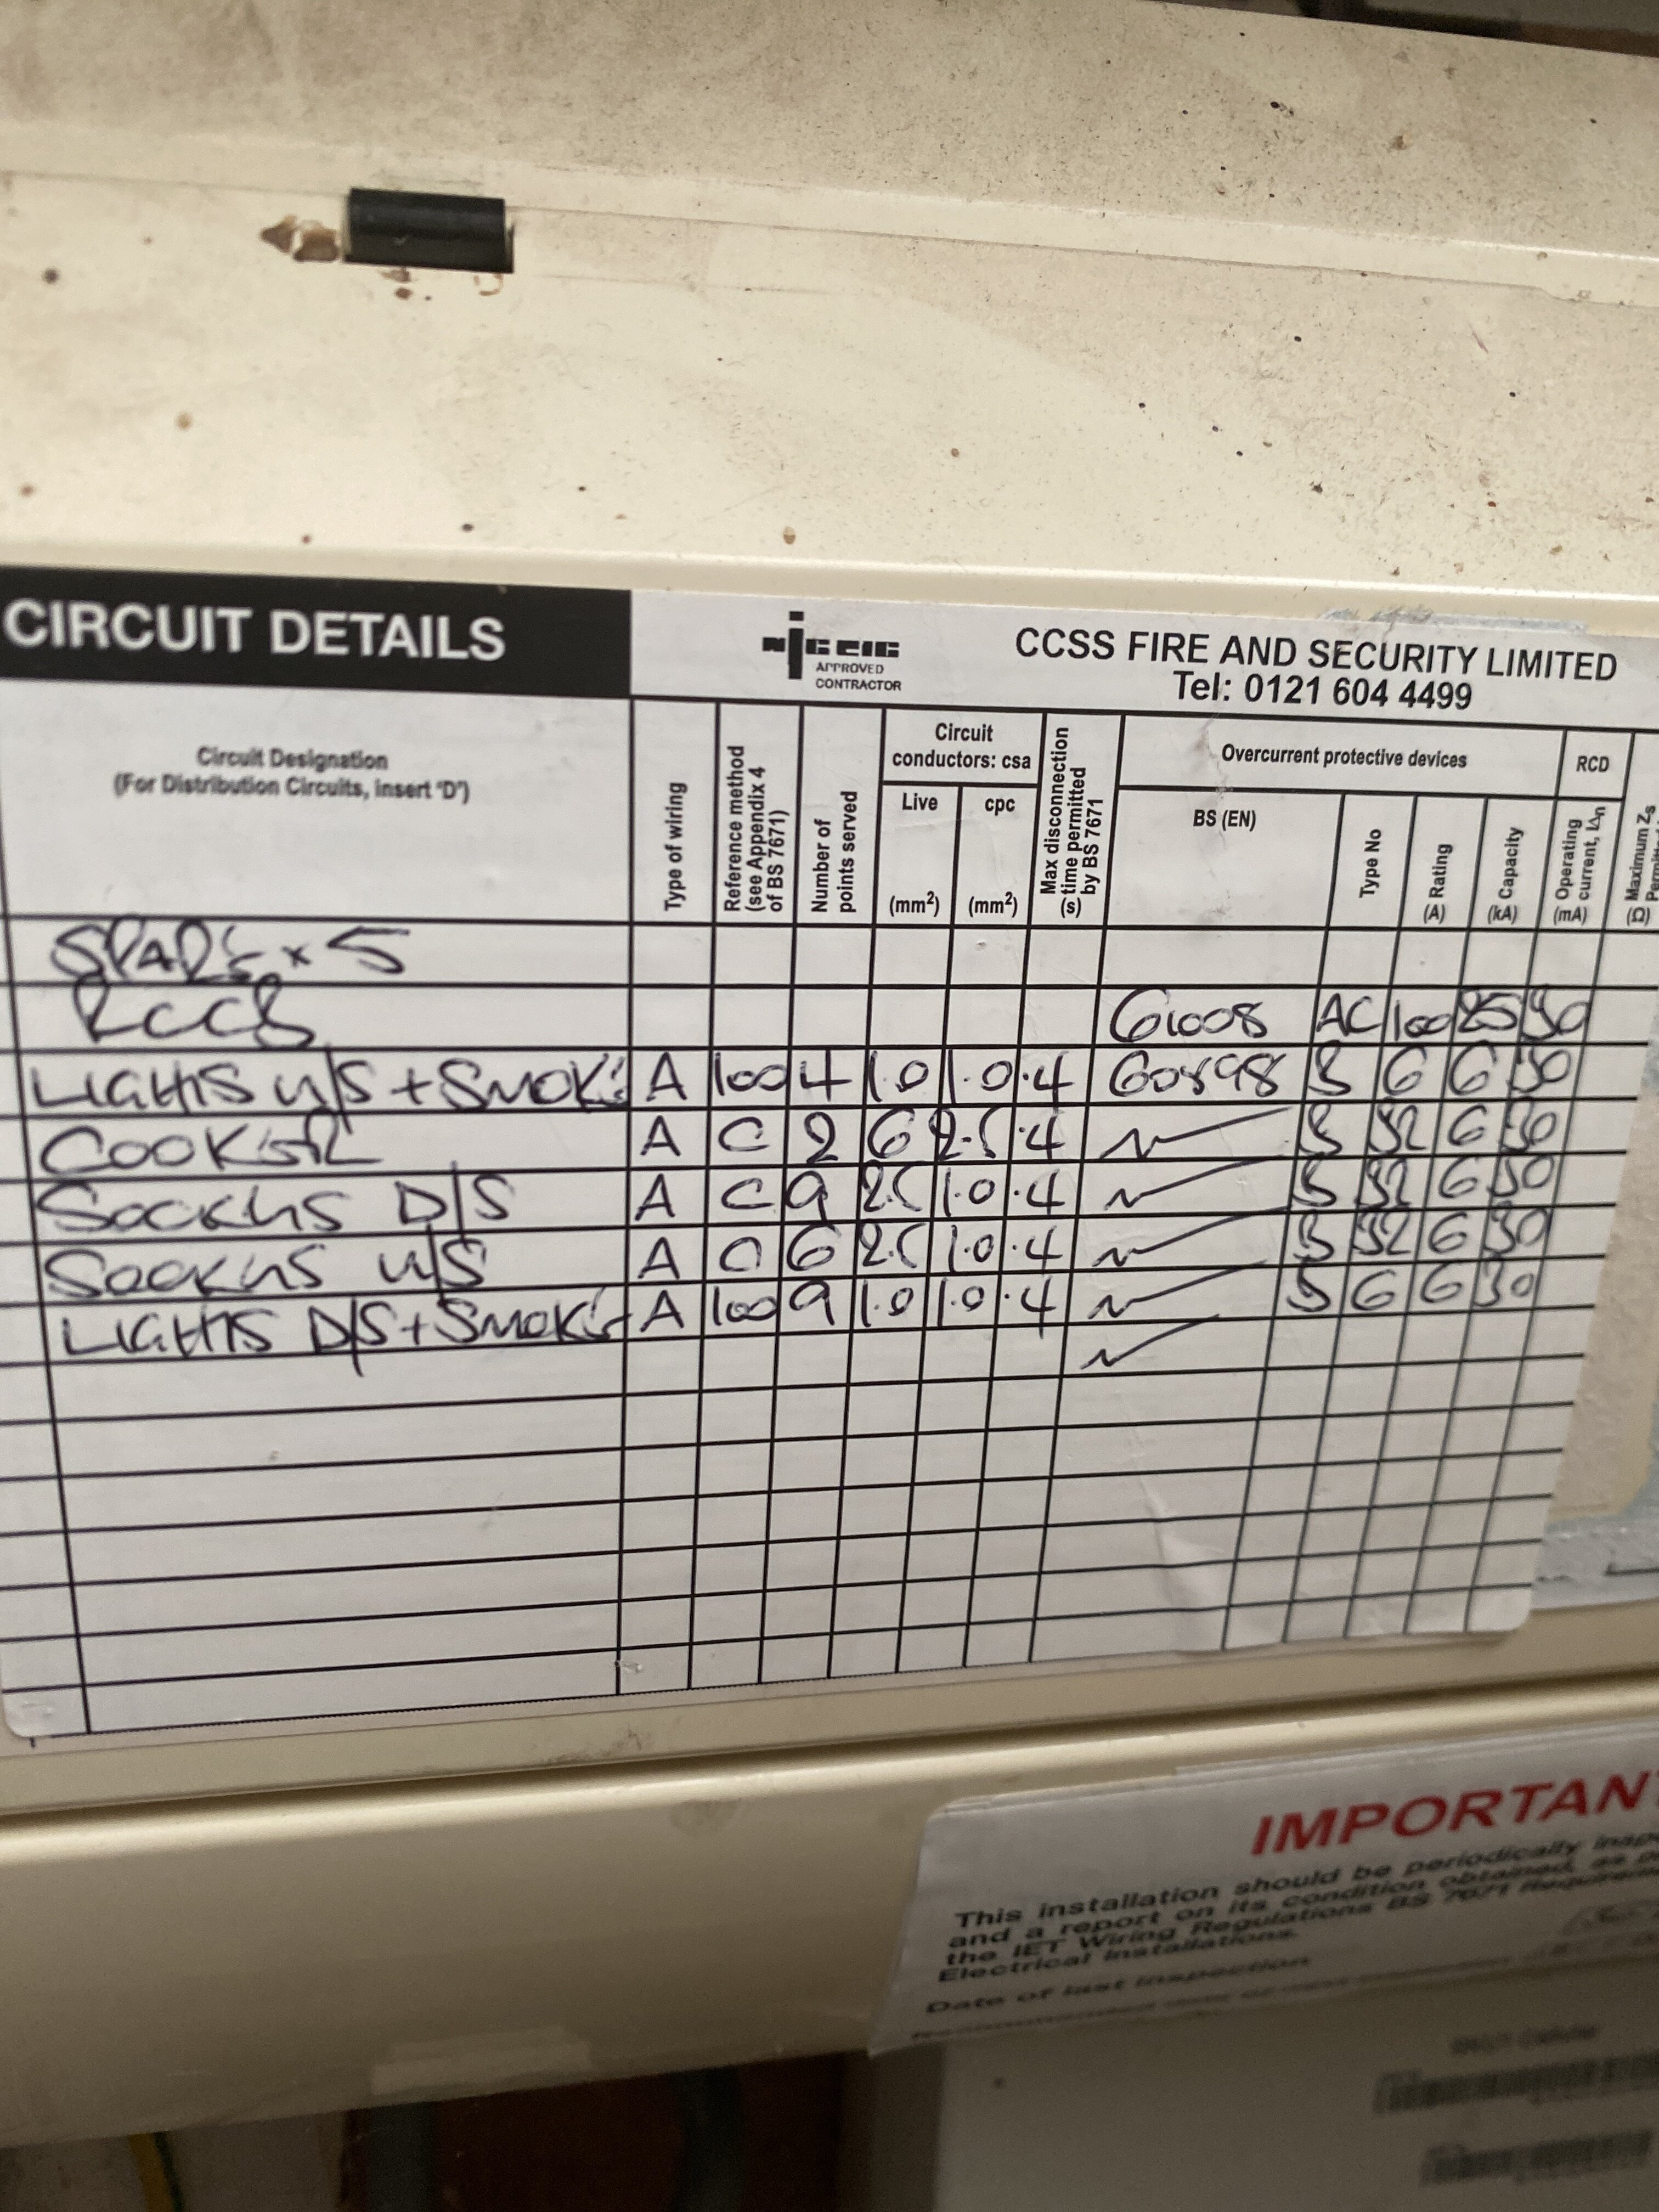 CIRCUIT DETAILS
NICEIC
APPROVED
CONTRACTOR
CCSS FIRE AND SECURITY LIMITED
Tel: 0121 604 4499
Circuit Designation
(For Distribution Circuits, insert 'D')
Type of wiring
Reference method
(see Appendix 4
of BS 7671)
Number of
points served
Circuit
conductors: csa
Live
(mm²)
cpc
(mm²)
Max disconnection
time permitted
by BS 7671
(s)
Overcurrent protective devices
BS (EN)
Type No
Rating
(A)
Capacity
(kA)
RCD
Operating
current, IΔn
(mA)
Maximum Zs
(Ω)
SPARE x 5
RCCB 61008 AC 100 25 30
LIGHTS U/S + SMOKE A 100 4 1.0 1.0 .4 60898 B 6 6 30
COOKER A C 2 6 2.5 .4 B 32 6 30
SOCKETS D/S A C 9 2.5 1.0 .4 B 32 6 30
SOCKETS U/S A C 6 2.5 1.0 .4 B 32 6 30
LIGHTS D/S + SMOKE A 100 9 1.0 1.0 .4 B 6 6 30
IMPORTAN
This installation should be periodically insp
and a report on its condition obtained, as
the IET Wiring Regulations BS 7671
Electrical Installations.
Date of last inspection